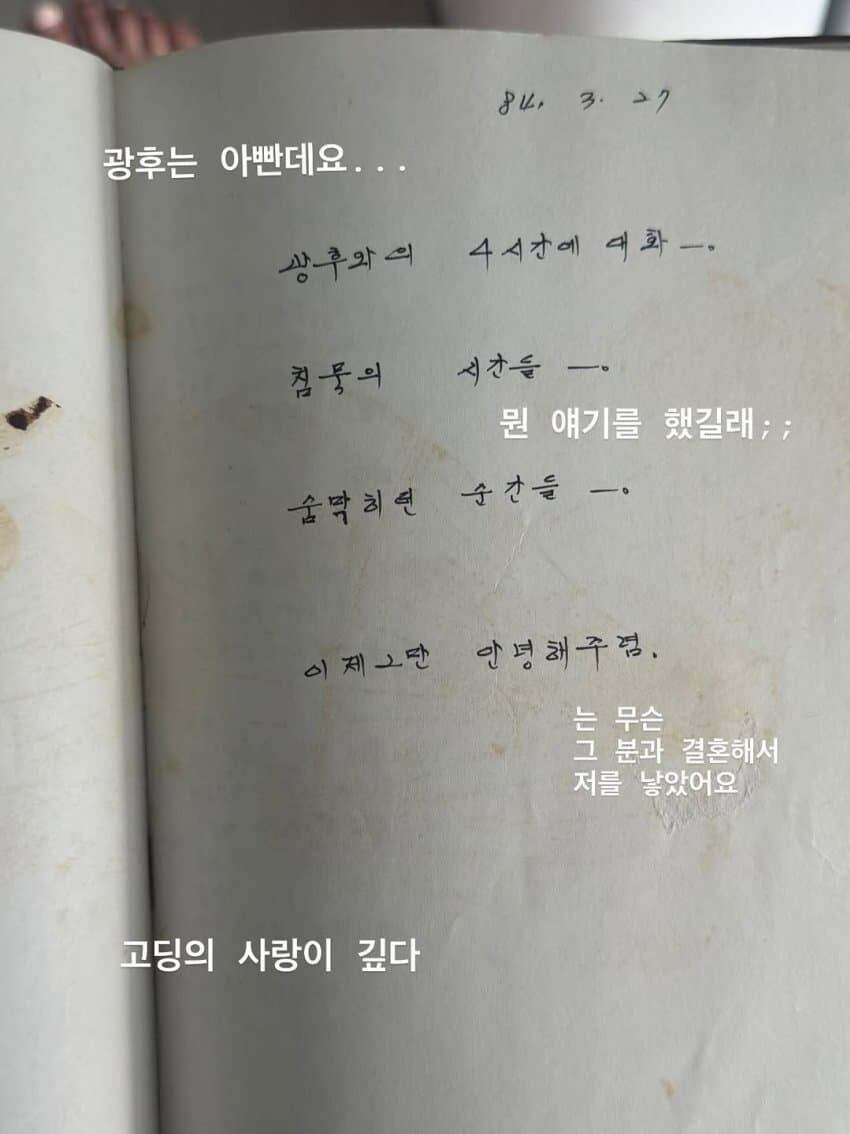 84. 3. 27
광후는 아빤데요...
광후와의 4시간에 대화 —.
침묵의 시간들 —.
뭔 얘기를 했길래;;
숨막히던 순간들 —.
이제그만 안녕해주렴.
는 무슨
그 분과 결혼해서
저를 낳았어요
고딩의 사랑이 깊다